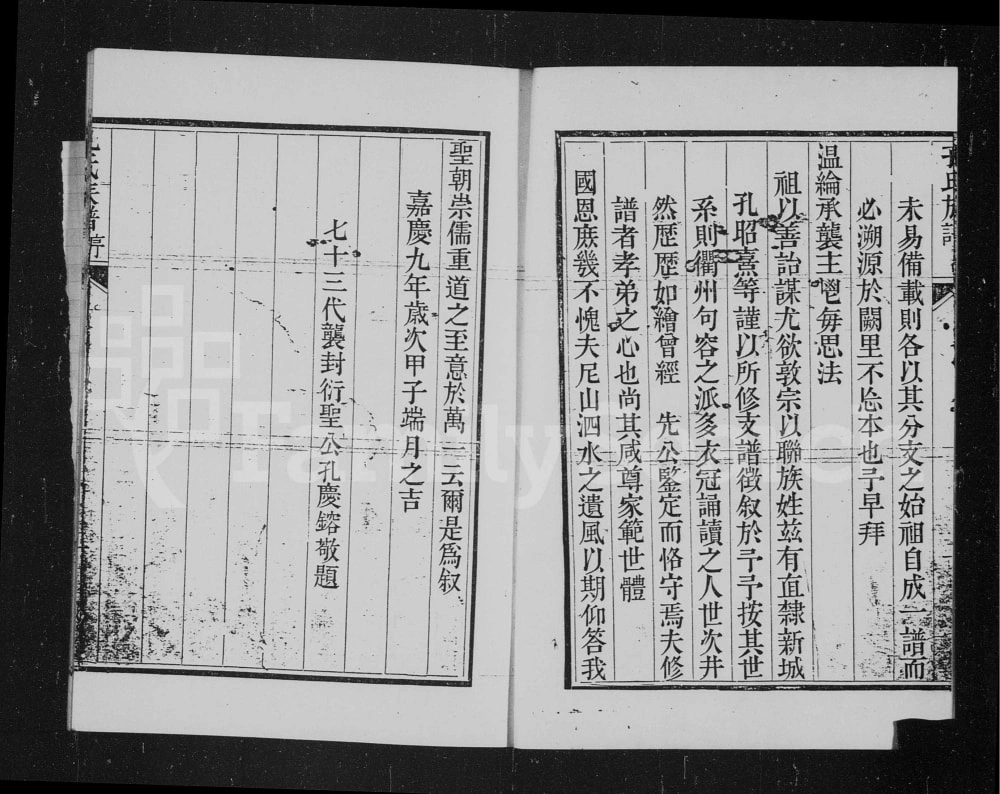 孔氏族譜
未易備載則各以其分支之始祖自成一譜而
必溯源於闕里不忘本也予早拜
温綸承襲主鬯每思法
祖以善詒謀尤欲敦宗以聯族姓茲有直隸新城
孔昭熹等謹以所修支譜徵叙於予予按其世
系則衢州句容之派多衣冠誦讀之人世次井
然歷歷如繪曾經 先公鑒定而恪守焉夫修
譜者孝弟之心也尚其咸尊家範世體
國恩庶幾不愧夫尼山泗水之遺風以期仰答我
聖朝崇儒重道之至意於萬一云爾是為叙
嘉慶九年歲次甲子端月之吉
七十三代襲封衍聖公孔慶鎔敬題
氏族譜
FamilySearch